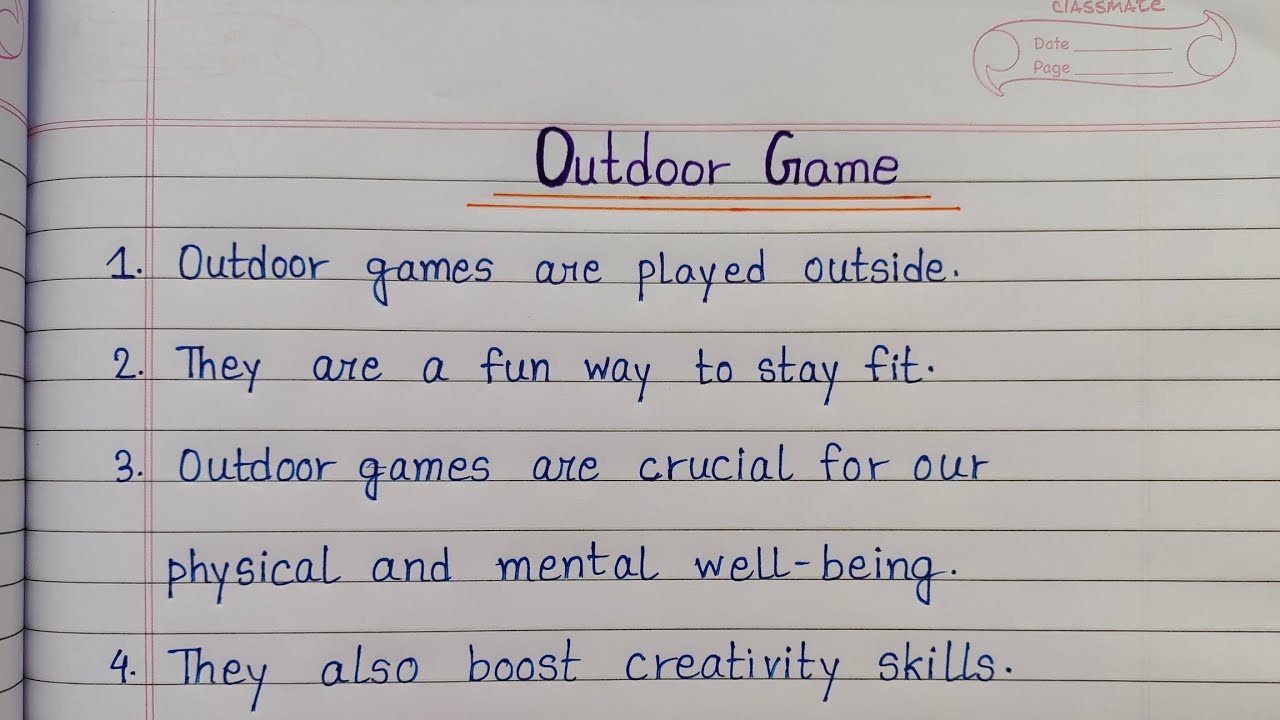 classmate
Date
Page
Outdoor Game
1. Outdoor games are played outside.
2. They are a fun way to stay fit.
3. Outdoor games are crucial for our
physical and mental well-being.
4. They also boost creativity skills.